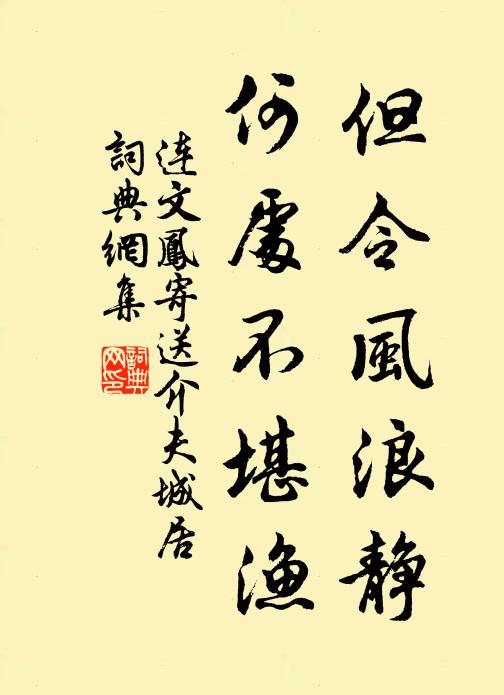 但令風浪静
何處不堪漁
连文鳳寄送介夫城居
詞典網集
詞典网印